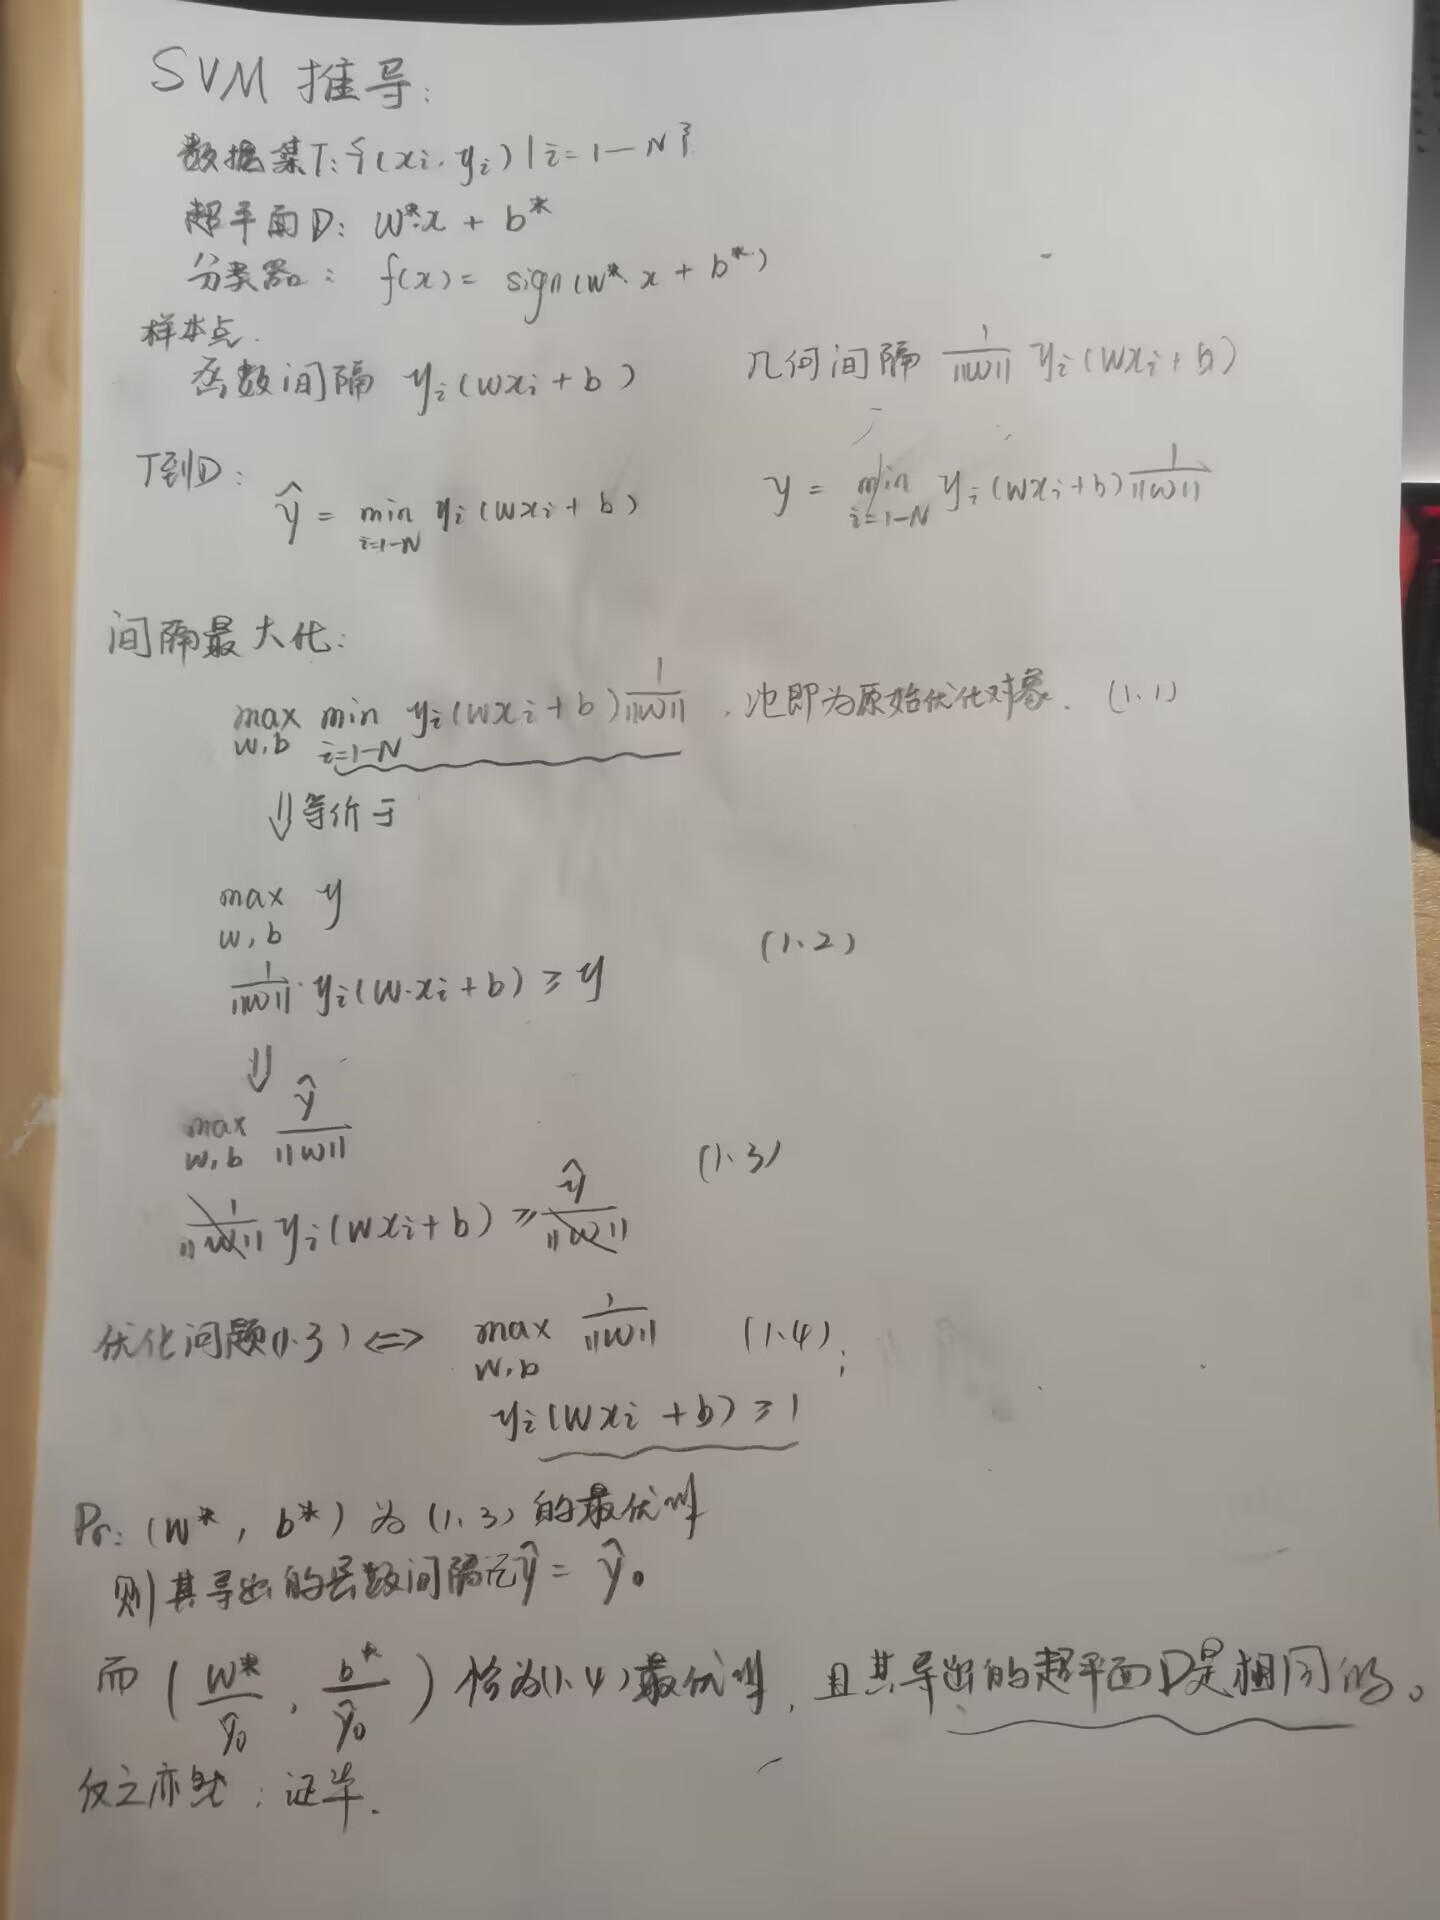 SVM 推导:
数据集T: {(xi, yi) | i = 1 — N}
超平面D: w*·x + b*
分类器: f(x) = sign(w*·x + b*)
样本点.
函数间隔 yi(wxi + b) 几何间隔 1/||w|| yi(wxi + b)
T到D: ŷ = min i=1-N yi(wxi + b) y = min i=1-N yi(wxi + b) 1/||w||
间隔最大化:
max w,b min i=1-N yi(wxi + b) 1/||w|| , 即为原始优化对象. (1.1)
⇓ 等价于
max w,b y
(1.2)
1/||w|| · yi(w·xi + b) ≥ y
⇓
max w,b ŷ/||w||
(1.3)
1/||w|| yi(wxi + b) ≥ ŷ/||w||
优化问题(1.3) <=> max w,b 1/||w|| (1.4);
yi(wxi + b) ≥ 1
Pr: (w*, b*) 为 (1.3) 的最优解
则其导出的函数间隔记ŷ = ŷ0
而 (w*/ŷ0, b*/ŷ0) 恰为(1.4)最优解, 且其导出的超平面D是相同的。
反之亦然; 证毕.